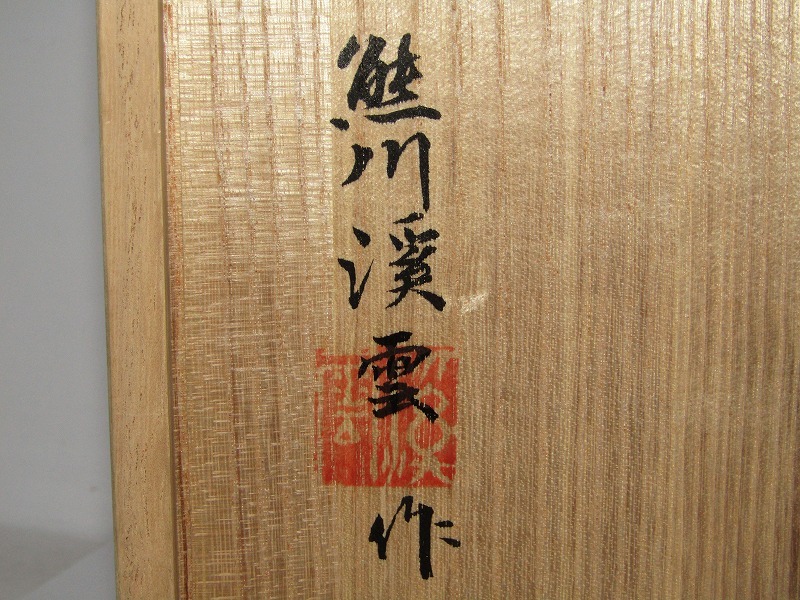 熊川溪雲作